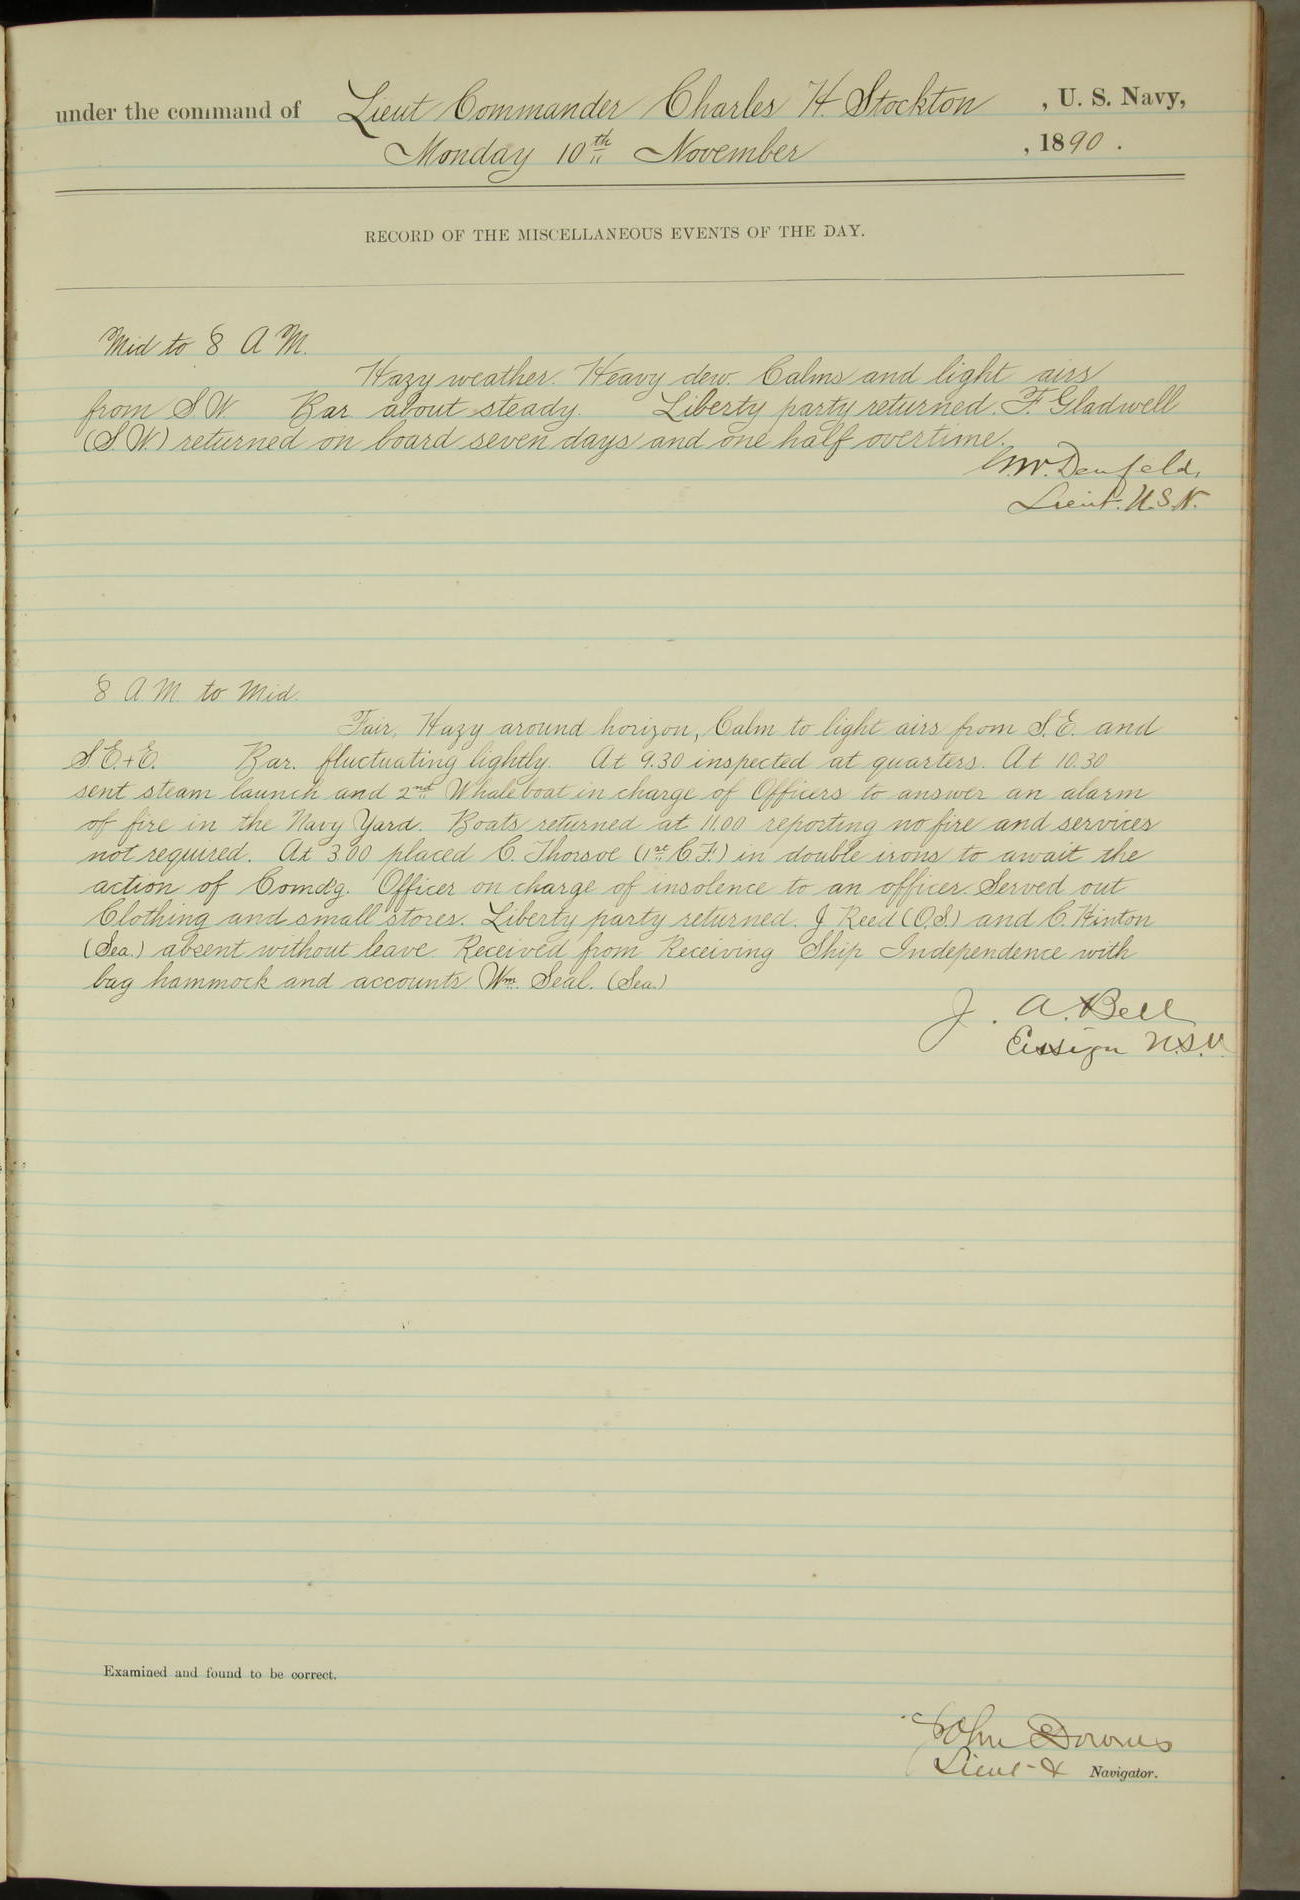 under the command of Lieut Commander Charles H. Stockton , U. S. Navy,
Monday 10th November , 1890 .
RECORD OF THE MISCELLANEOUS EVENTS OF THE DAY.
Mid to 8 A M.
Hazy weather. Heavy dew. Calms and light airs
from S W. Bar. about steady. Liberty party returned. F. Gladwell
(S. W.) returned on board seven days and one half overtime.
Denfeld,
Lieut. U.S.N.
8 A M. to Mid.
Fair, Hazy around horizon, Calm to light airs from S. E. and
S. E. + E. Bar. fluctuating lightly. At 9.30 inspected at quarters. At 10.30
sent steam launch and 2nd Whaleboat in charge of Officers to answer an alarm
of fire in the Navy Yard. Boats returned at 11.00 reporting no fire and services
not required. At 3.00 placed C. Thorsoe (1st C F.) in double irons to await the
action of Comdg. Officer on charge of insolence to an officer. Served out
Clothing and small stores. Liberty party returned. J. Reed (O.S.) and C. Hinton
(Sea.) absent without leave. Received from Receiving Ship Independence with
bag hammock and accounts Wm. Seal. (Sea.)
J. A. Bell
Ensign U.S.N.
Examined and found to be correct.
John Downes
Lieut - & Navigator.